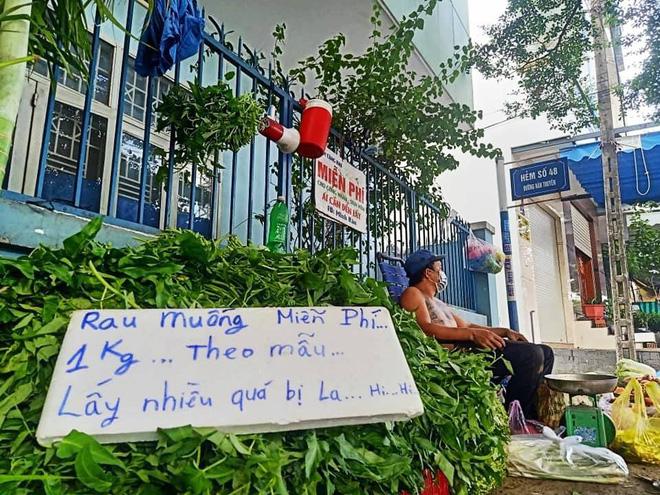 MIỄN PHÍ
AI CẦN ĐẾN LẤY
HẺM SỐ 48
ĐƯỜNG HÀN THUYÊN
Rau muống Miễn Phí...
1 Kg... Theo mẫu...
Lấy nhiều quá bị La... Hi... Hi...